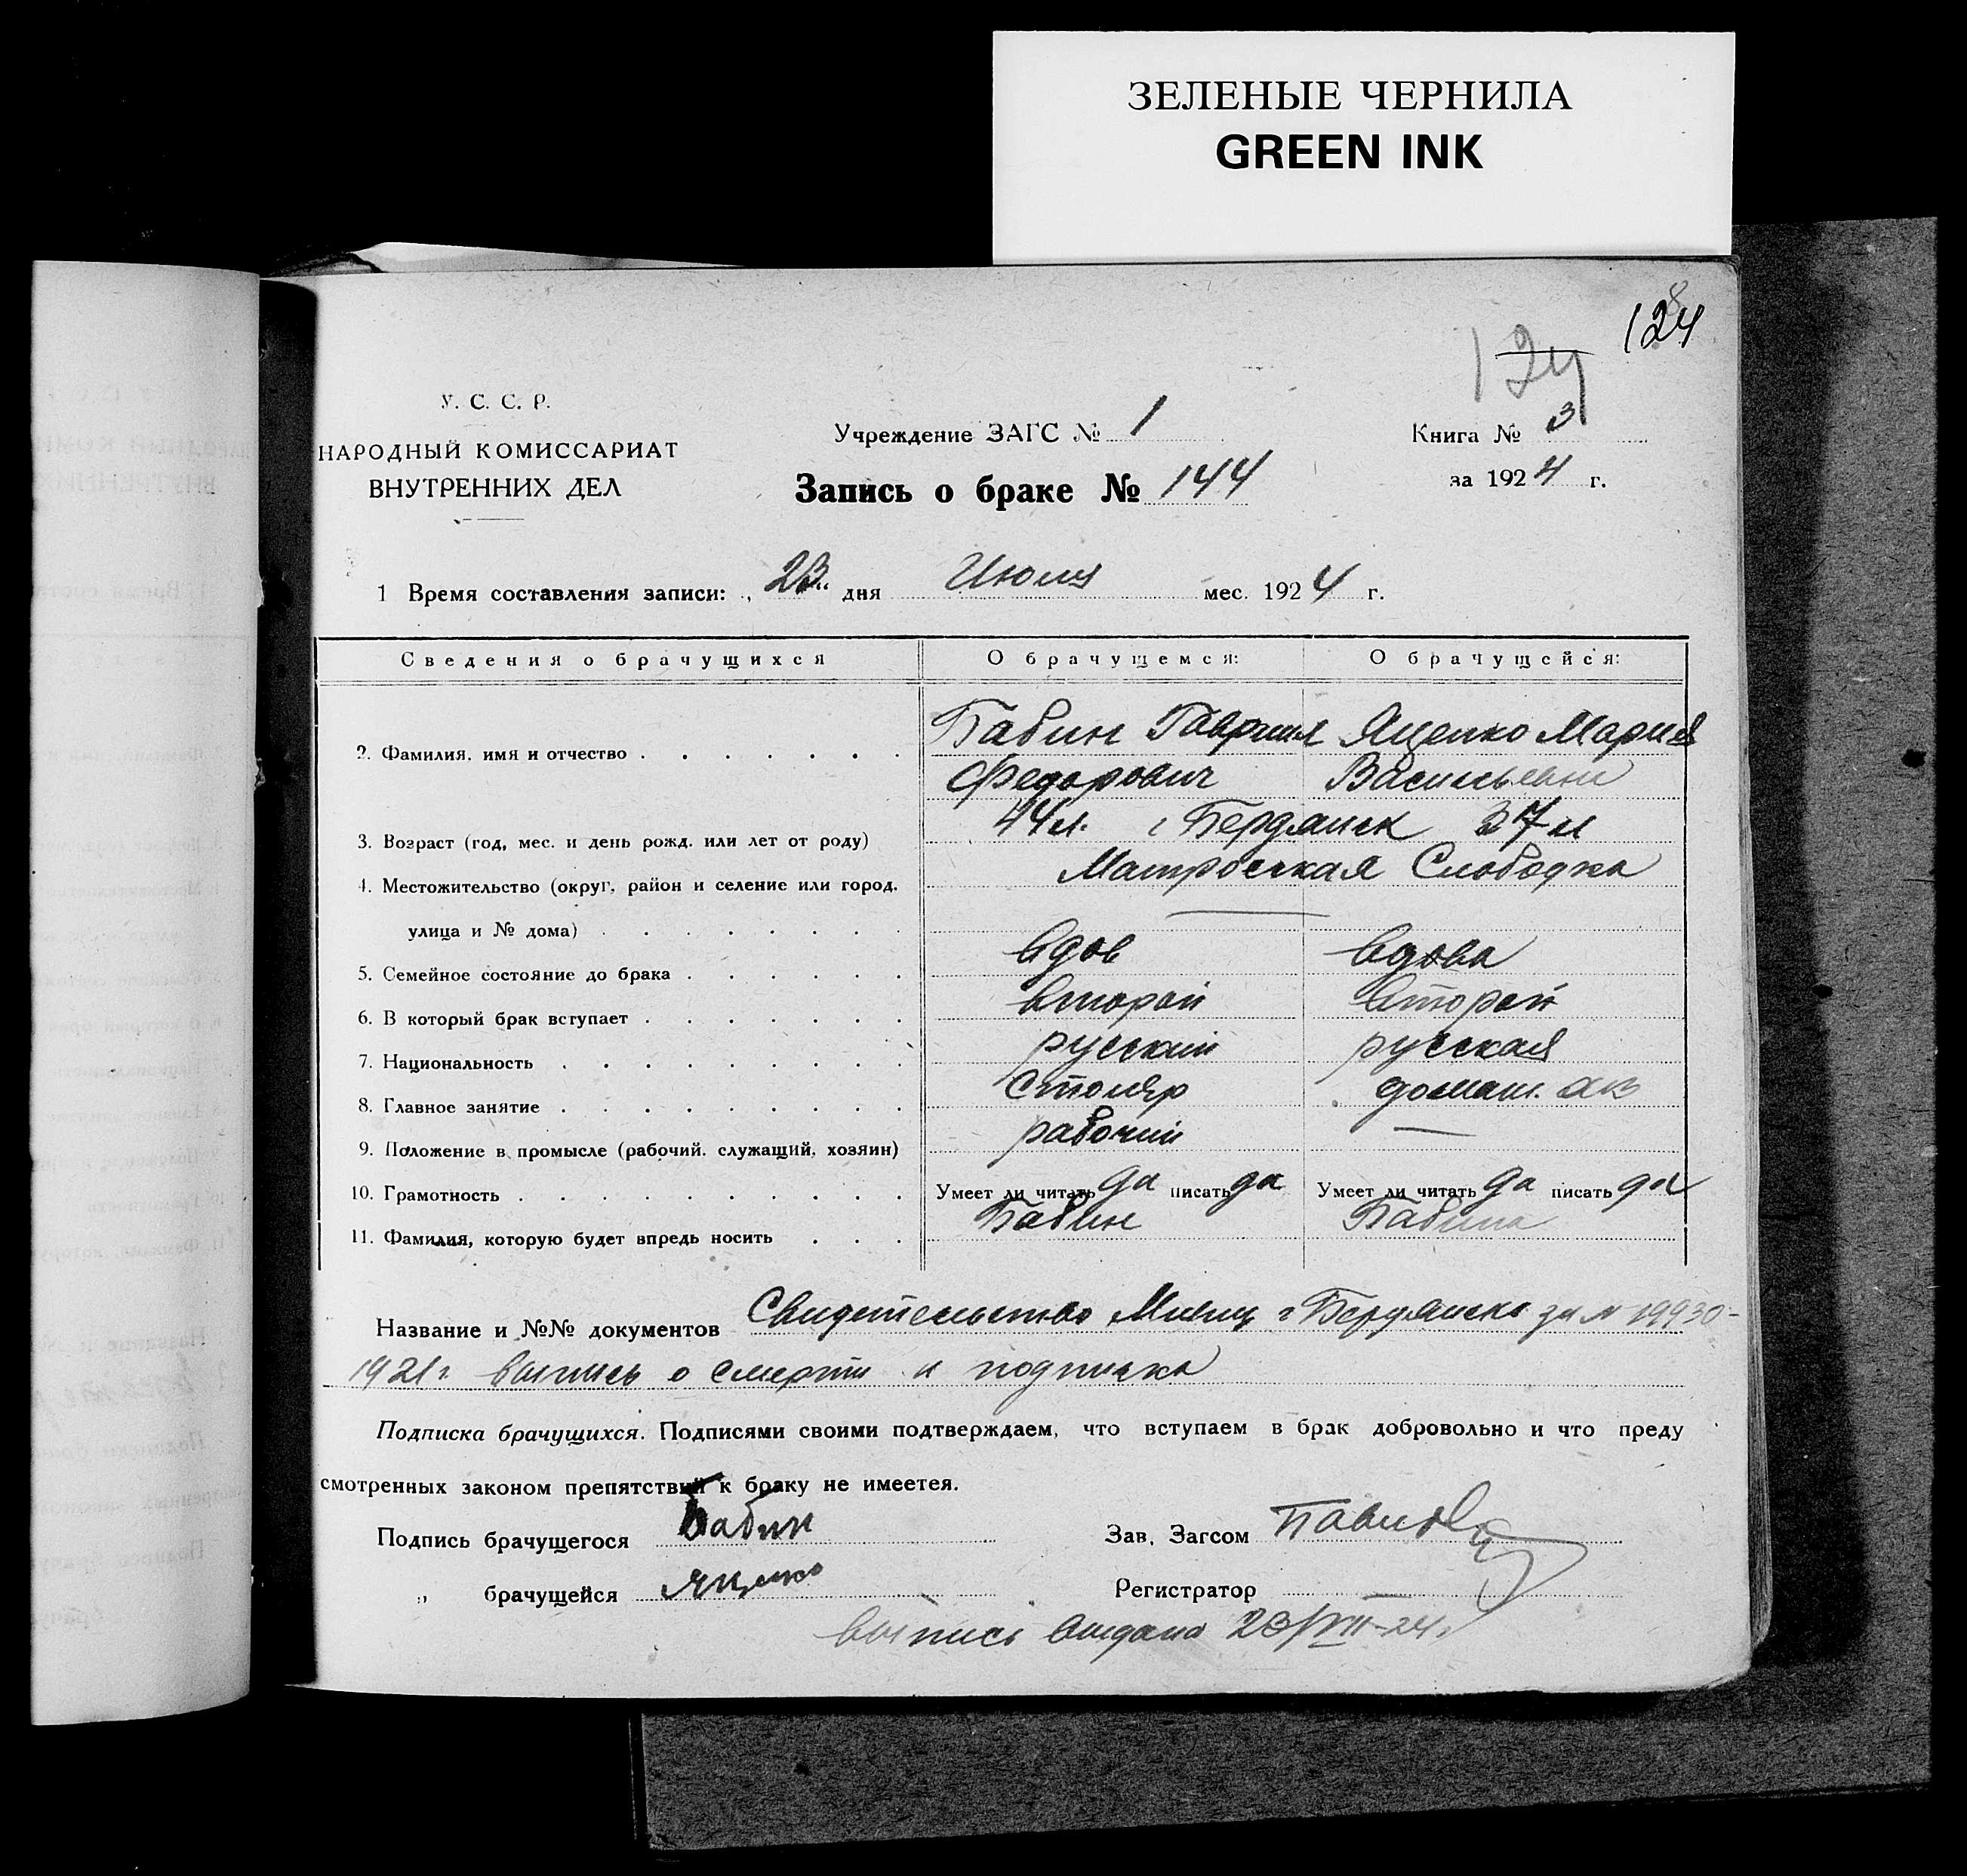 ЗЕЛЕНЫЕ ЧЕРНИЛА
GREEN INK
124
124
У. С. С. Р.
НАРОДНЫЙ КОМИССАРИАТ
ВНУТРЕННИХ ДЕЛ
Учреждение ЗАГС № 1
Книга № 3
Запись о браке № 144
за 1924 г.
1 Время составления записи: „23“ дня Июля мес. 1924 г.
Сведения о брачущихся О брачущемся: О брачущейся:
2. Фамилия, имя и отчество Бабин Гавриил Яценко Мария
Федорович Васильевна
3. Возраст (год, мес. и день рожд. или лет от роду) 44 л. г Бердянск 37 л
4. Местожительство (округ, район и селение или город, Матросская Слободка
улица и № дома) —
5. Семейное состояние до брака вдов вдова
6. В который брак вступает второй второй
7. Национальность русский русская
8. Главное занятие столяр домаш. хоз
9. Положение в промысле (рабочий, служащий, хозяин) рабочий —
10. Грамотность Умеет ли читать да писать да Умеет ли читать да писать да
11. Фамилия, которую будет впредь носить Бабин Бабина
Название и №№ документов Свидетельство Милиц г Бердянска за № 19930-
1921 г. выпись о смерти и подписка
Подписка брачущихся. Подписями своими подтверждаем, что вступаем в брак добровольно и что преду
смотренных законом препятствий к браку не имеетея.
Подпись брачущегося Бабин Зав. Загсом
„ брачущейся Яценко Регистратор
выпись выдана 23/VII-24 г.